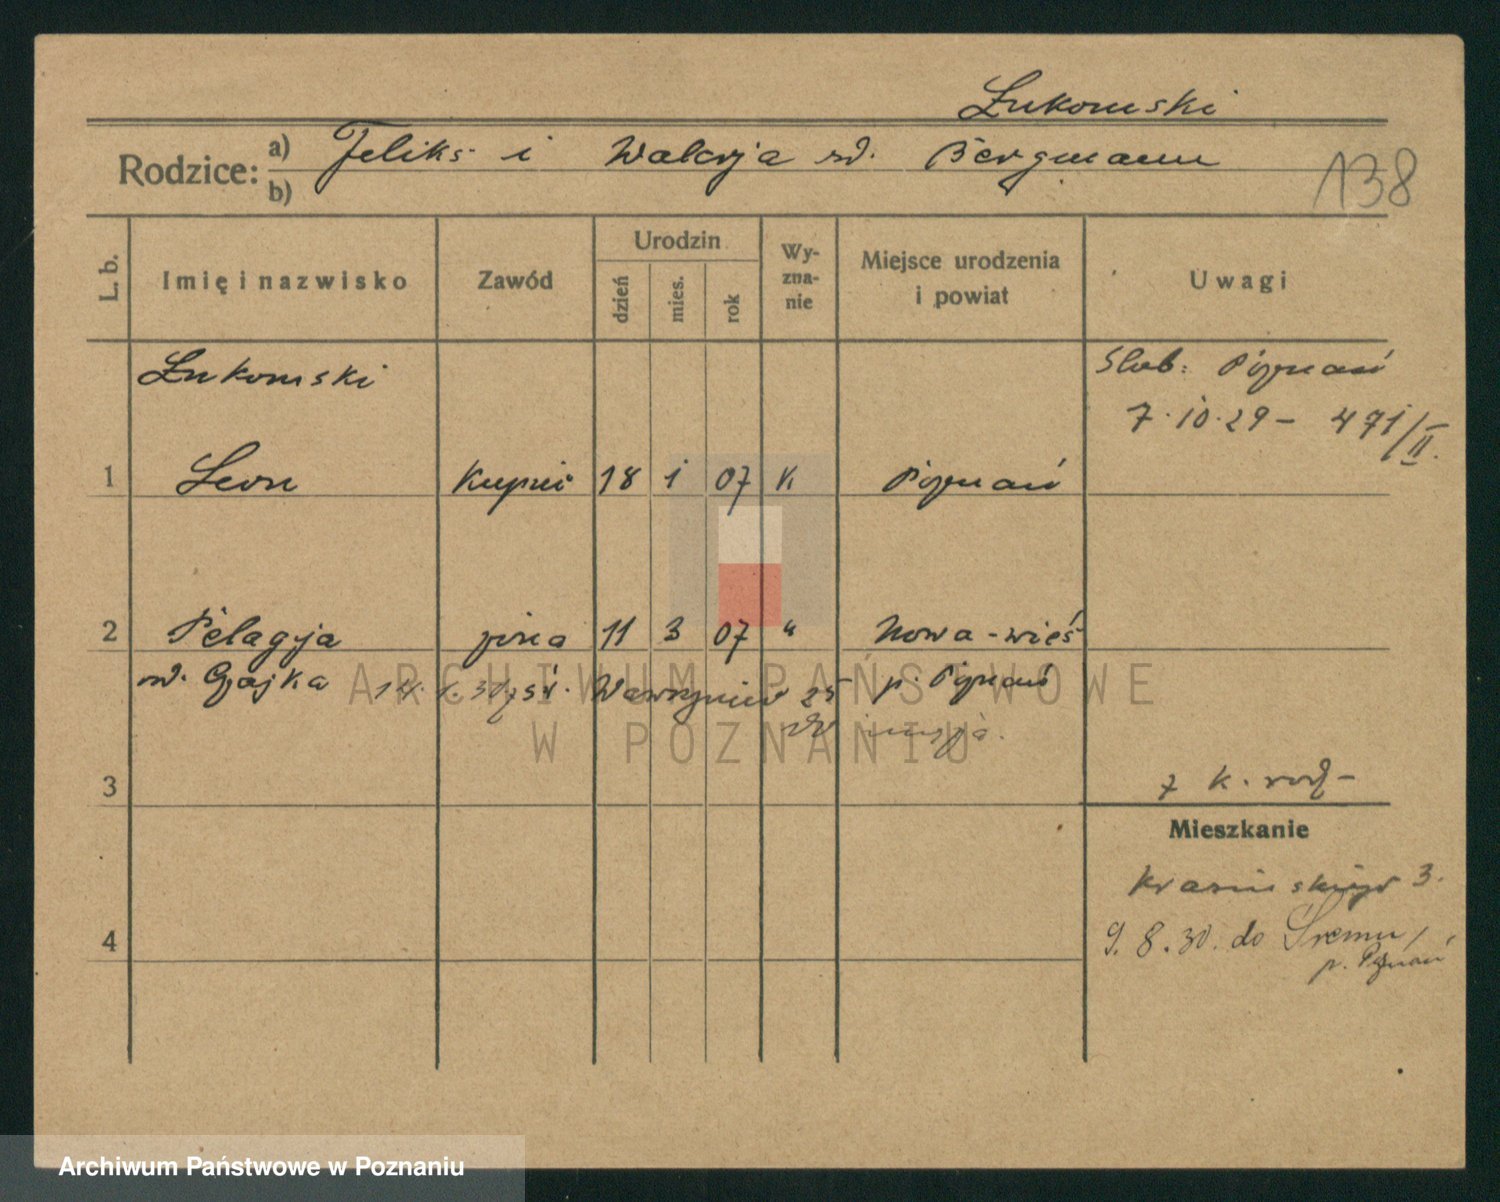 Łukomski
Rodzice: a) Feliks i Walerja rd. Bergmann
b)
138
L. b.
Imię i nazwisko
Zawód
Urodzin
dzień
mies.
rok
Wy-
zna-
nie
Miejsce urodzenia
i powiat
Uwagi
Łukomski
Ślub: Poznań
7.10.29 – 471/II.
1 Leon kupiec 18 1 07 K Poznań
2 Pelagja żona 11 3 07 " Nowa-wieś
rd. Gajka
p. Poznań
14. 1. 31 z św. Wawrzyńca 25
3
z k. rodz –
Mieszkanie
Krasińskiego 3.
4
9. 8. 30. do Śremu /
p. Poznań
ARCHIWUM PAŃSTWOWE
W POZNANIU
Archiwum Państwowe w Poznaniu